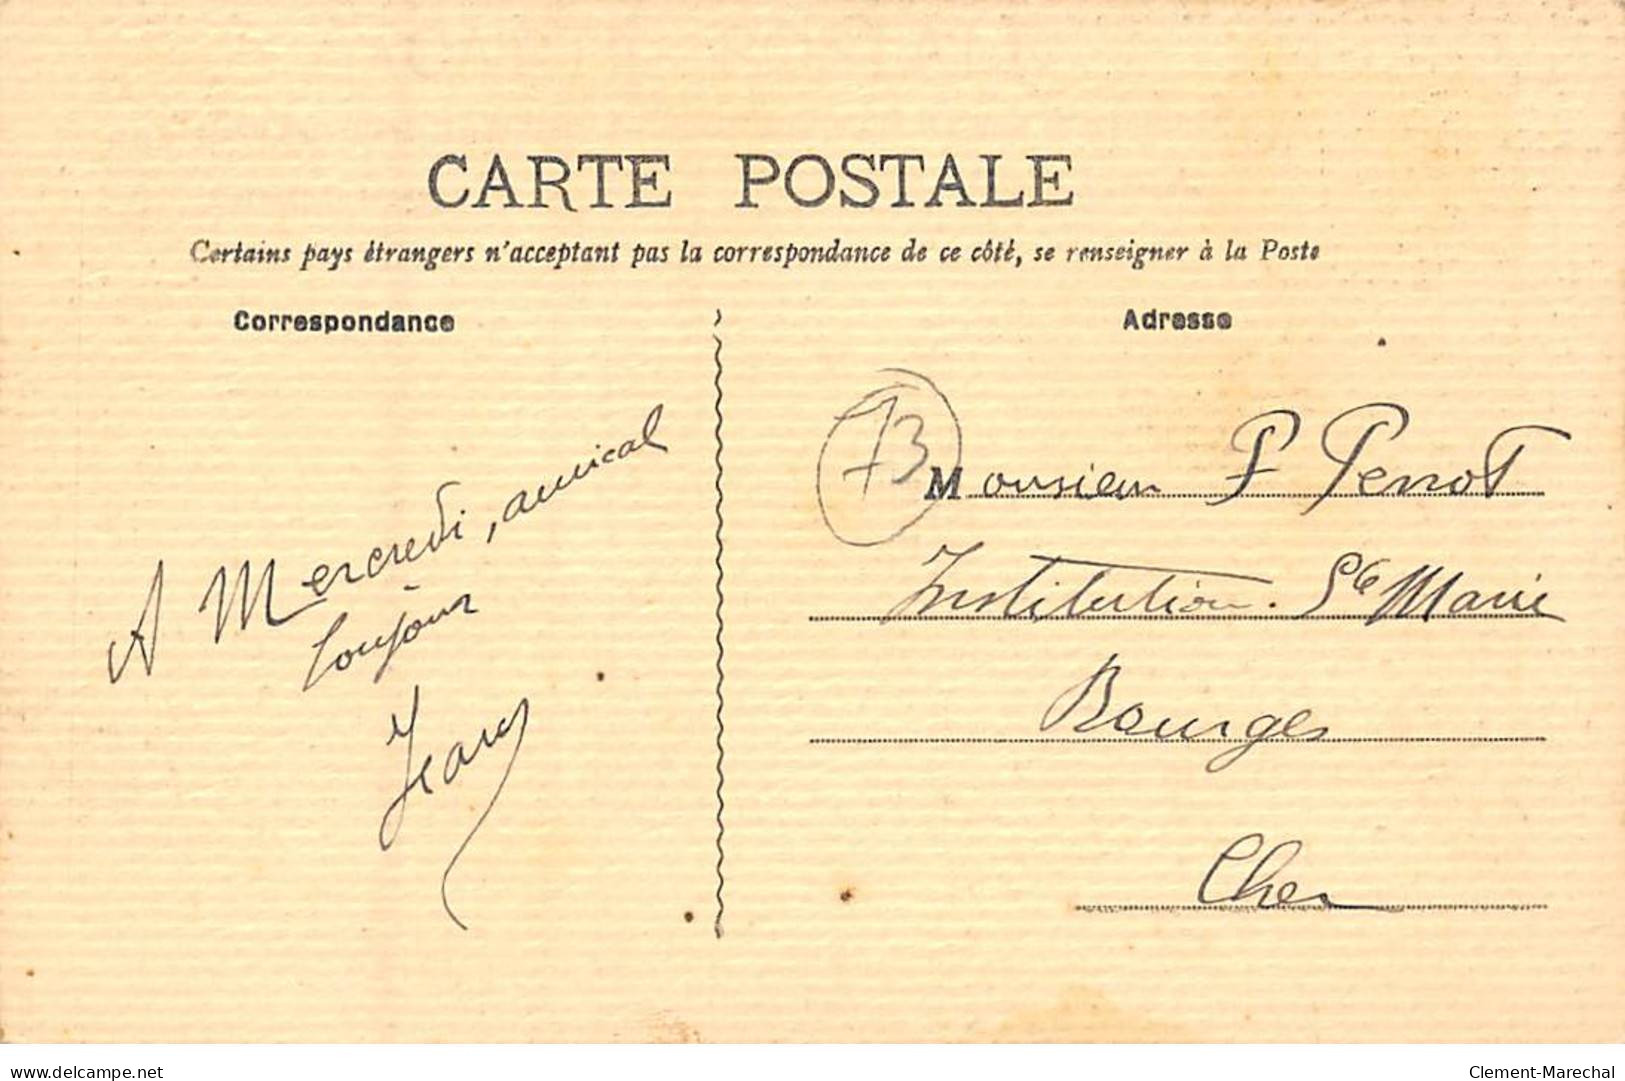 CARTE POSTALE
Certains pays étrangers n'acceptant pas la correspondance de ce côté, se renseigner à la Poste
Correspondance
A Mercredi, amical
toujours
Jean
Adresse
73
Monsieur P Perrot
Institution Ste Marie
Bourges
Cher
www.delcampe.net
Clement-Marechal